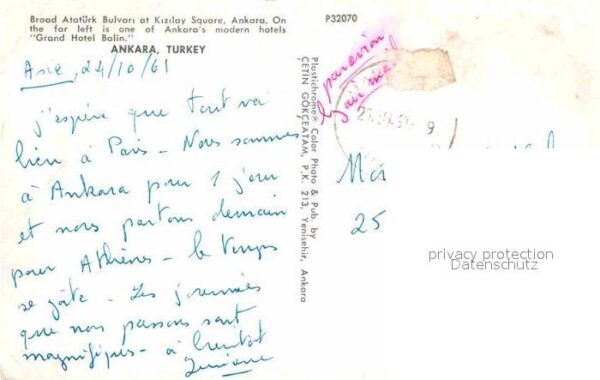 Broad Atatürk Bulvarı at Kızılay Square, Ankara. On
the far left is one of Ankara's modern hotels
"Grand Hotel Balin."
ANKARA, TURKEY
P32070
24/10/61
j'espère que tout va
bien à Paris - Nous sommes
à Ankara pour 1 jour
et nous partons demain
pour Athènes - le temps
se gâte - Les journées
que nous passons sont
magnifiques - à bientôt
Plastichrome® Color Photo & Pub. by
ÇETİN GÖKÇEATAM, P.K. 213, Yenişehir, Ankara
par avion
air mail
25
privacy protection
Datenschutz